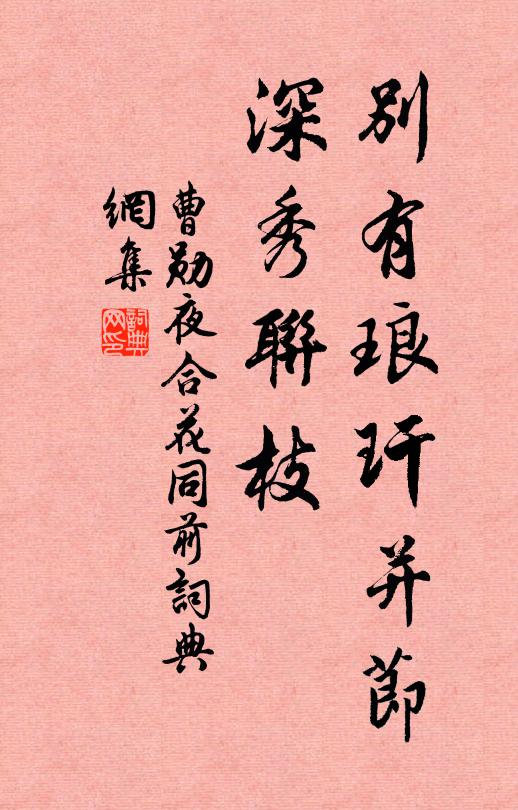 別有琅玕并節
深秀聯枝
曹勛夜合花同前詞典
網集
詞典
网印